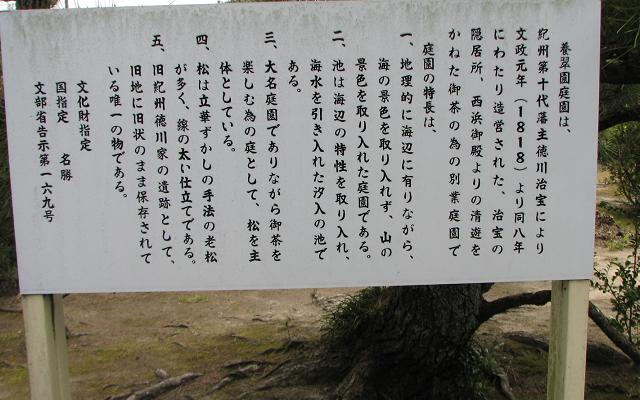 養翠園庭園は、
紀州第十代藩主徳川治宝により
文政元年（1818）より同八年
にわたり造営された、治宝の
隠居所、西浜御殿よりの清遊を
かねた御茶の為の別業庭園で
庭園の特長は、
一、地理的に海辺に有りながら、
海の景色を取り入れず、山の
景色を取り入れた庭園である。
二、池は海辺の特性を取り入れ、
海水を引き入れた汐入の池で
ある。
三、大名庭園でありながら御茶を
楽しむ為の庭として、松を主
体としている。
四、松は立華ずかしの手法の老松
が多く、線の太い仕立てである。
五、旧紀州徳川家の遺跡として、
旧地に旧状のまま保存されて
いる唯一の物である。
文化財指定
国指定　名勝
文部省告示第一六九号